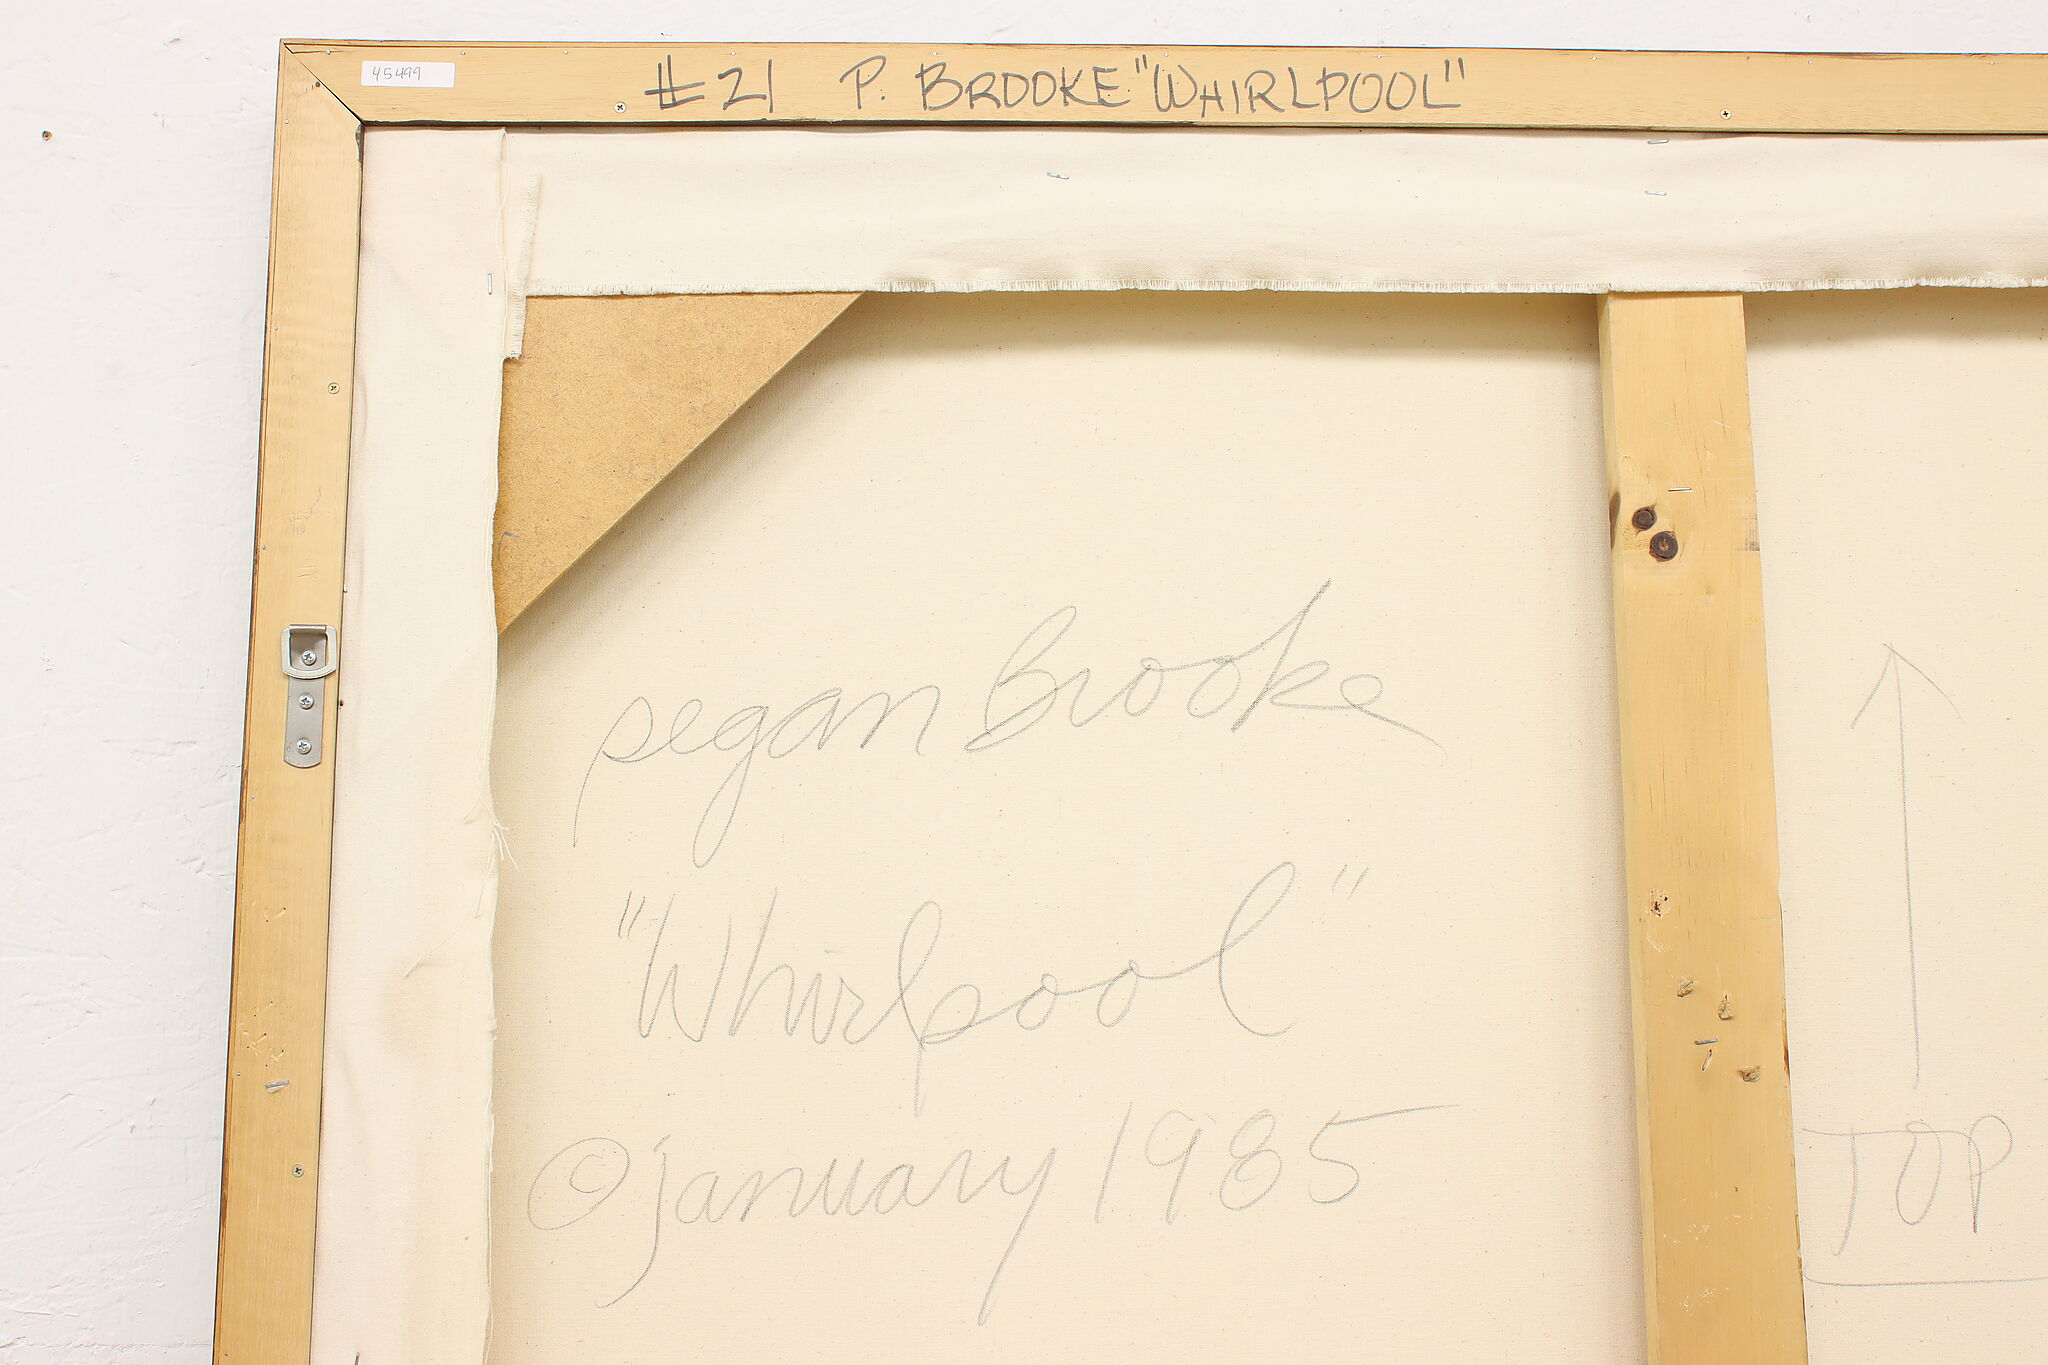 45499
#21 P. BROOKE "WHIRLPOOL"
pegan Brooke
"Whirlpool"
© january 1985
TOP